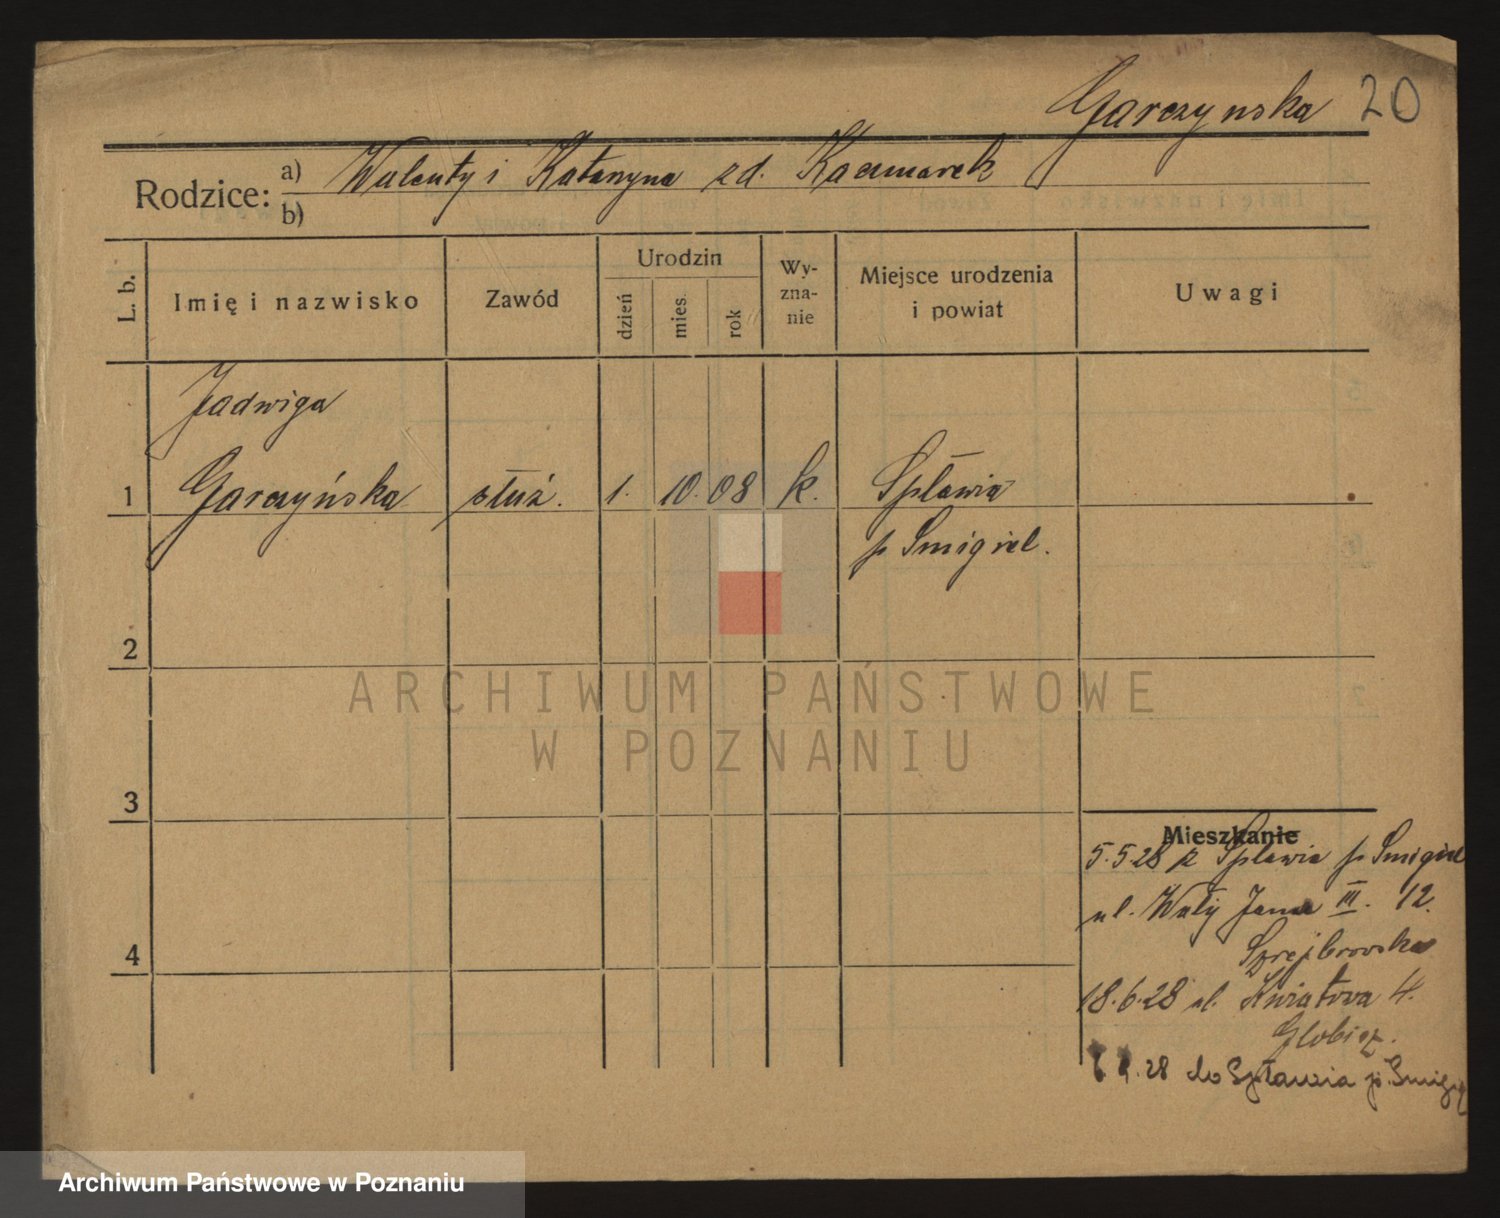 Garczynska 20
Rodzice: a) Walenty i Katarzyna zd. Kaczmarek
b)
L. b. Imię i nazwisko Zawód Urodzin dzień mies. rok Wy-zna-nie Miejsce urodzenia i powiat Uwagi
Jadwiga
1 Garczyńska służ. 1. 10. 08 k. Spławia
p Smigiel.
2
3
Mieszkanie
5.5.28 z Spławia p Smigiel
ul. Wały Jana III. 12.
4
18.6.28 ul. Kwiatowa 4.
28 do Spławia p. Smigiel
ARCHIWUM PAŃSTWOWE
W POZNANIU
Archiwum Państwowe w Poznaniu